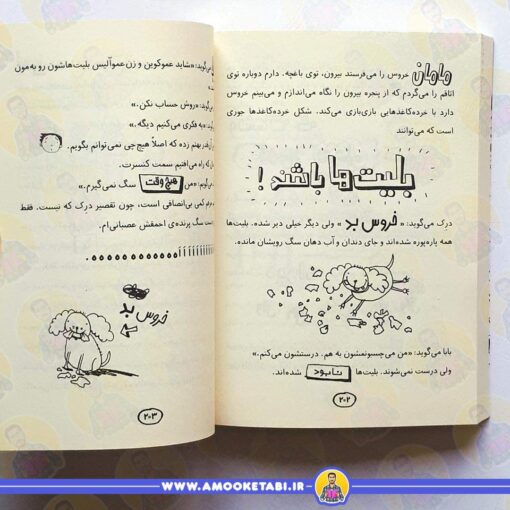 مامان خروس را می‌فرستد بیرون، توی باغچه. دارم دوباره توی
اتاقم را می‌گردم که از پنجره بیرون را نگاه می‌اندازم و می‌بینم خروس
دارد با خرده‌کاغذهایی بازی‌بازی می‌کند. شکل خرده‌کاغذها جوری
است که می‌توانند
بلیت‌ها باشند!
درک می‌گوید: «خروس بد» ولی دیگر خیلی دیر شده. بلیت‌ها
همه پاره‌پوره شده‌اند و جای دندان و آب دهان سگ رویشان مانده.
بابا می‌گوید: «من می‌چسبونمشون به هم. درستشون می‌کنم.»
ولی درست نمی‌شوند. بلیت‌ها نابود شده‌اند.
۲۰۲
می‌گوید: «شاید عموکوین و زن‌عموآلیس بلیت‌هاشون رو به‌مون
»
می‌گوید: «روش حساب نکن.»
«یه فکری می‌کنیم دیگه.»
قدر بهتم زده که اصلاً هیچ‌چی نمی‌توانم بگویم.
که راه می‌افتیم سمت کنسرت.
می‌گویم: «من هیچ‌وقت سگ نمی‌گیرم.»
کمی بی‌انصافی است، چون تقصیر درک که نیست. فقط
سگ پرنده‌ی احمقش عصبانی‌ام.
خروس بد
۲۰۳
WWW.AMOOKETABI.IR